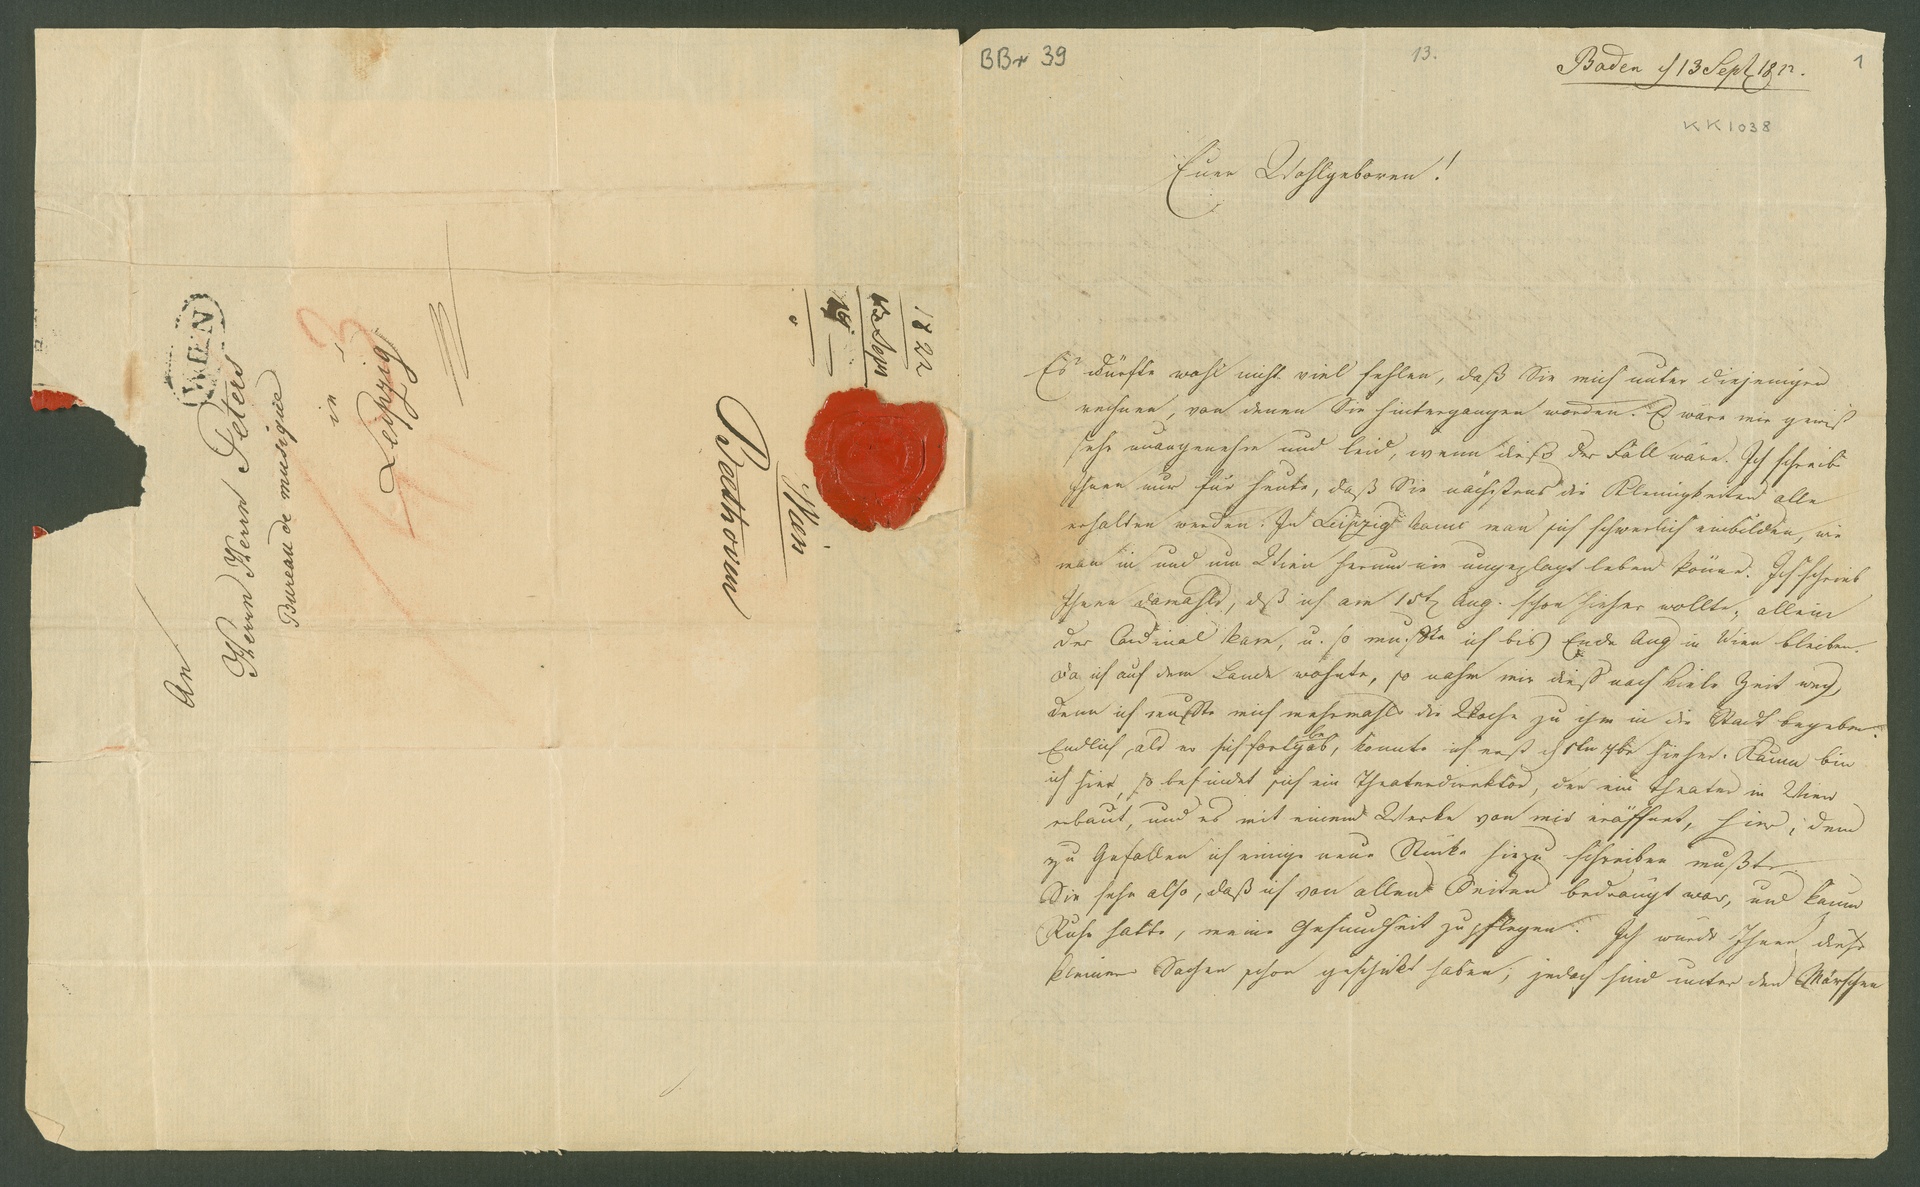 An
Herrn Herrn Peters
Bureau de musique
in
Leipzig
WIEN
3
1822
13 Sepr
Wien
Beethoven
BBr 39
13.
Baden d 13 Sept 1822.
1
KK 1038
Euer Wohlgeboren!
Es dürfte wohl nicht viel fehlen, daß Sie mich unter diejenigen
rechnen, von denen Sie hintergangen worden. Es wäre mir gewiß
sehr unangenehm und leid, wenn dieß der Fall wäre. Ich schreib
Ihnen nur für heute, daß Sie nächstens die Kleinigkeiten alle
erhalten werden. In Leipzig kann man sich schwerlich einbilden, wie
man in und um Wien herum nie ungeplagt leben könne. Ich schrieb
Ihnen damahls, daß ich am 15t Aug. schon hieher wollte, allein
der Cardinal kam, u. so mußte ich bis Ende Aug in Wien bleiben.
Da ich auf dem Lande wohnte, so nahm mir dieß noch viele Zeit weg,
denn ich mußte mich mehrmahls die Woche zu ihm in die Stadt begeben.
Endlich, als er sich fortbegab, konnte ich erst d 1ten 7br hieher. Kaum bin
ich hier, so befindet sich ein Theaterdirektor, der ein Theater in Wien
erbaut, und es mit einem Werke von mir eröffnet, hier; dem
zu Gefallen ich einige neue Stücke hiezu schreiben mußte
Sie sehn also, daß ich von allen Seiten bedrängt war, und kaum
Ruhe hatte, meine Gesundheit zu pflegen. Ich würde Ihnen diese
kleinen Sachen schon geschickt haben; jedoch sind unter den Märschen